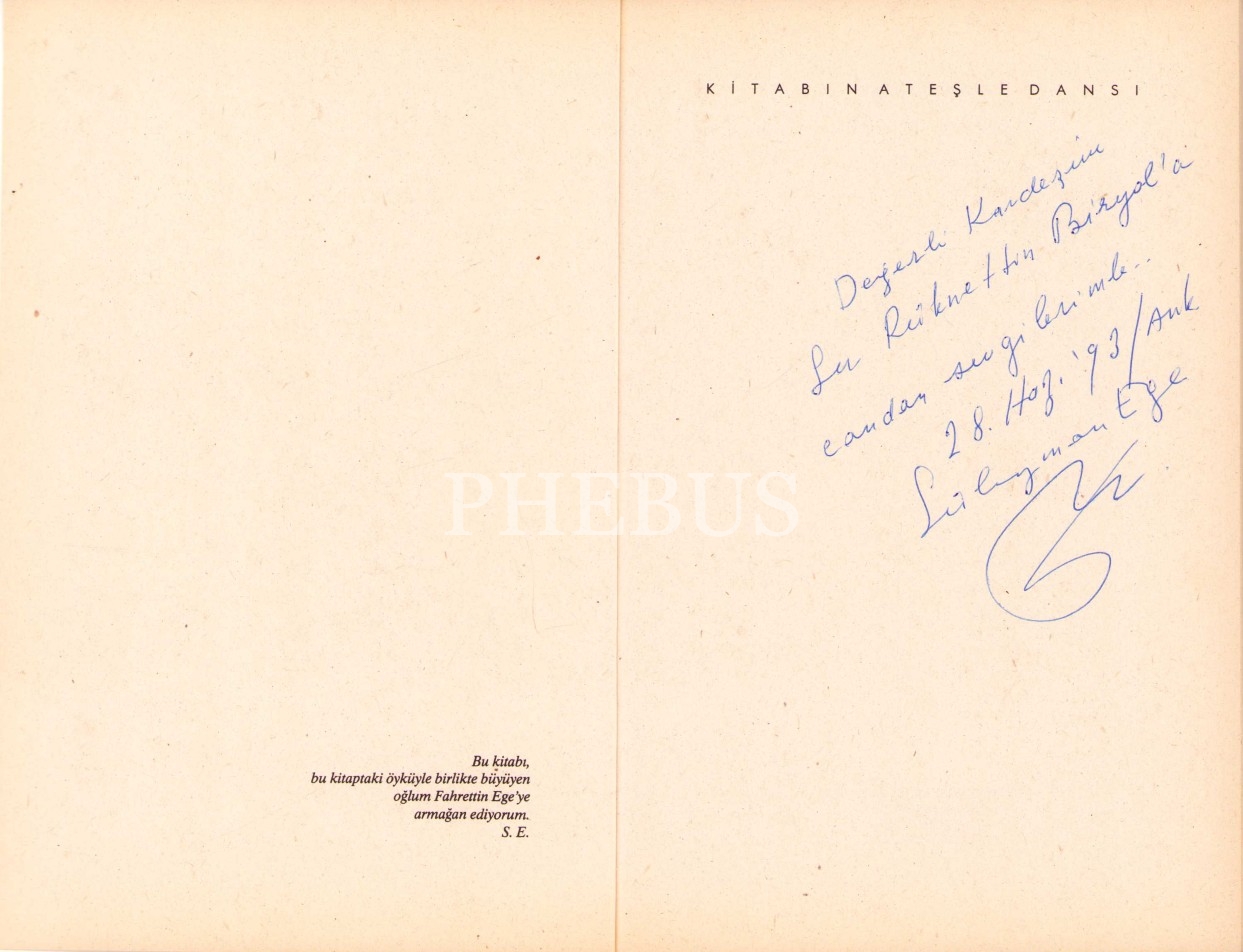 Bu kitabı,
bu kitaptaki öyküyle birlikte büyüyen
oğlum Fahrettin Ege'ye
armağan ediyorum.
S. E.
KİTABIN ATEŞLE DANSI
Değerli Kardeşim
Rüknettin Biryol'a
candan sevgilerimle..
28. Haz. '93/Ank
Süleyman Ege
PHEBUS